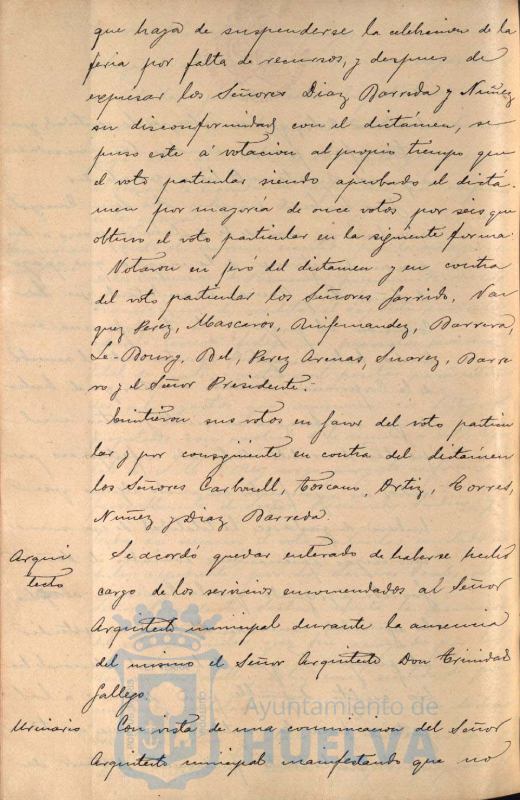 que haya de suspenderse la celebracion de la
feria por falta de recursos, y despues de
expresar los Señores Diaz Barreda y Nuñez
su disconformidad con el dictámen, se
puso este á votacion al propio tiempo que
el voto particular siendo aprobado el dictá-
men por mayoría de once votos por seis que
obtuvo el voto particular en la siguiente forma.
Votaron en pró del dictamen y en contra
del voto particular los Señores Garrido, Vaz
quez Perez, Mascarós, Quifernandez, Barrera,
Le-Bourg, Bel, Perez Arenas, Suarez, Barre
ro y el Señor Presidente.-
Emitieron sus votos en favor del voto particu
lar y por consigüiente en contra del dictámen
los Señores Carbonell, Toscano, Ortiz, Torres,
Nuñez y Diaz Barreda.
Arqui
tecto
Se acordó quedar enterado de haberse hecho
cargo de los servicios encomendados al Señor
Arquitecto municipal durante la ausencia
del mismo el Señor Arquitecto Don Trinidad
Gallego.
Urinario
Con vista de una comunicacion del Señor
Arquitecto municipal manifestando que no
Ayuntamiento de
HUELVA